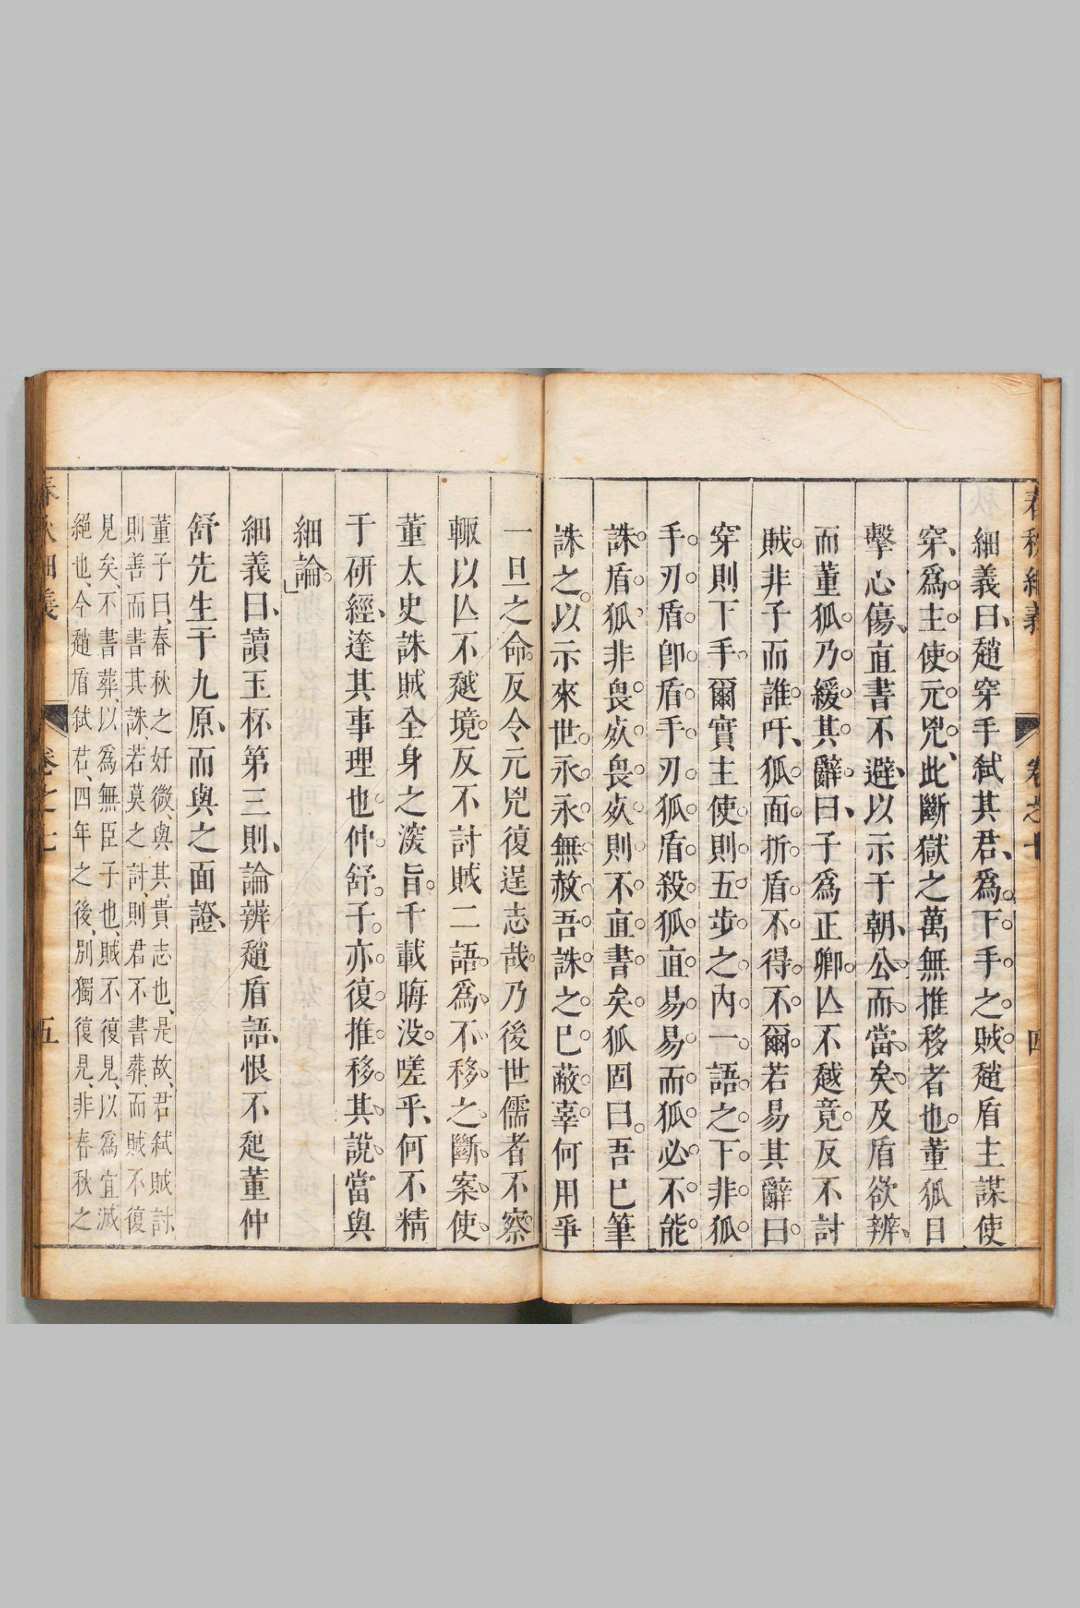 春秋細義
卷之七
四
細義曰、趙穿手弑其君、爲下手之賊。趙盾主謀使
穿、爲主使元兇、此斷獄之萬無推移者也。董狐目
擊心傷、直書不避、以示于朝、公而當矣、及盾欲辨、
而董狐乃緩其辭曰、子爲正卿。亾不越竟。反不討
賊。非子而誰。吁、狐面折盾。不得不爾。若易其辭曰。
穿則下手。爾實主使。則五步之內。一語之下。非狐
手刃盾。卽盾手刃狐。盾殺狐。直易易。而狐必不能
誅盾。狐非畏死。畏死。則不直書矣。狐固曰。吾已筆
誅之。以示來世。永永無赦。吾誅之已蔽辜。何用爭
一旦之命。反令元兇復逞志哉。乃後世儒者不察。
輙以亾不越境。反不討賊二語。爲不移之斷案。使
董太史誅賊全身之深旨。千載晦没。嗟乎、何不精
于研經、達其事理也。仲舒子亦復推移其說。當與
細論。」
細義曰、讀玉杯第三則、論辨趙盾語、恨不起董仲
舒先生于九原、而與之面證、
董子曰、春秋之好微、與其貴志也、是故、君弑賊討、
則善而書其誅、若莫之討、則君不書葬、而賊不復
見矣、不書葬、以爲無臣子也、賊不復見、以爲宜滅
絕也、今趙盾弑君、四年之後、別獨復見、非春秋之
春秋細義
卷之七
五